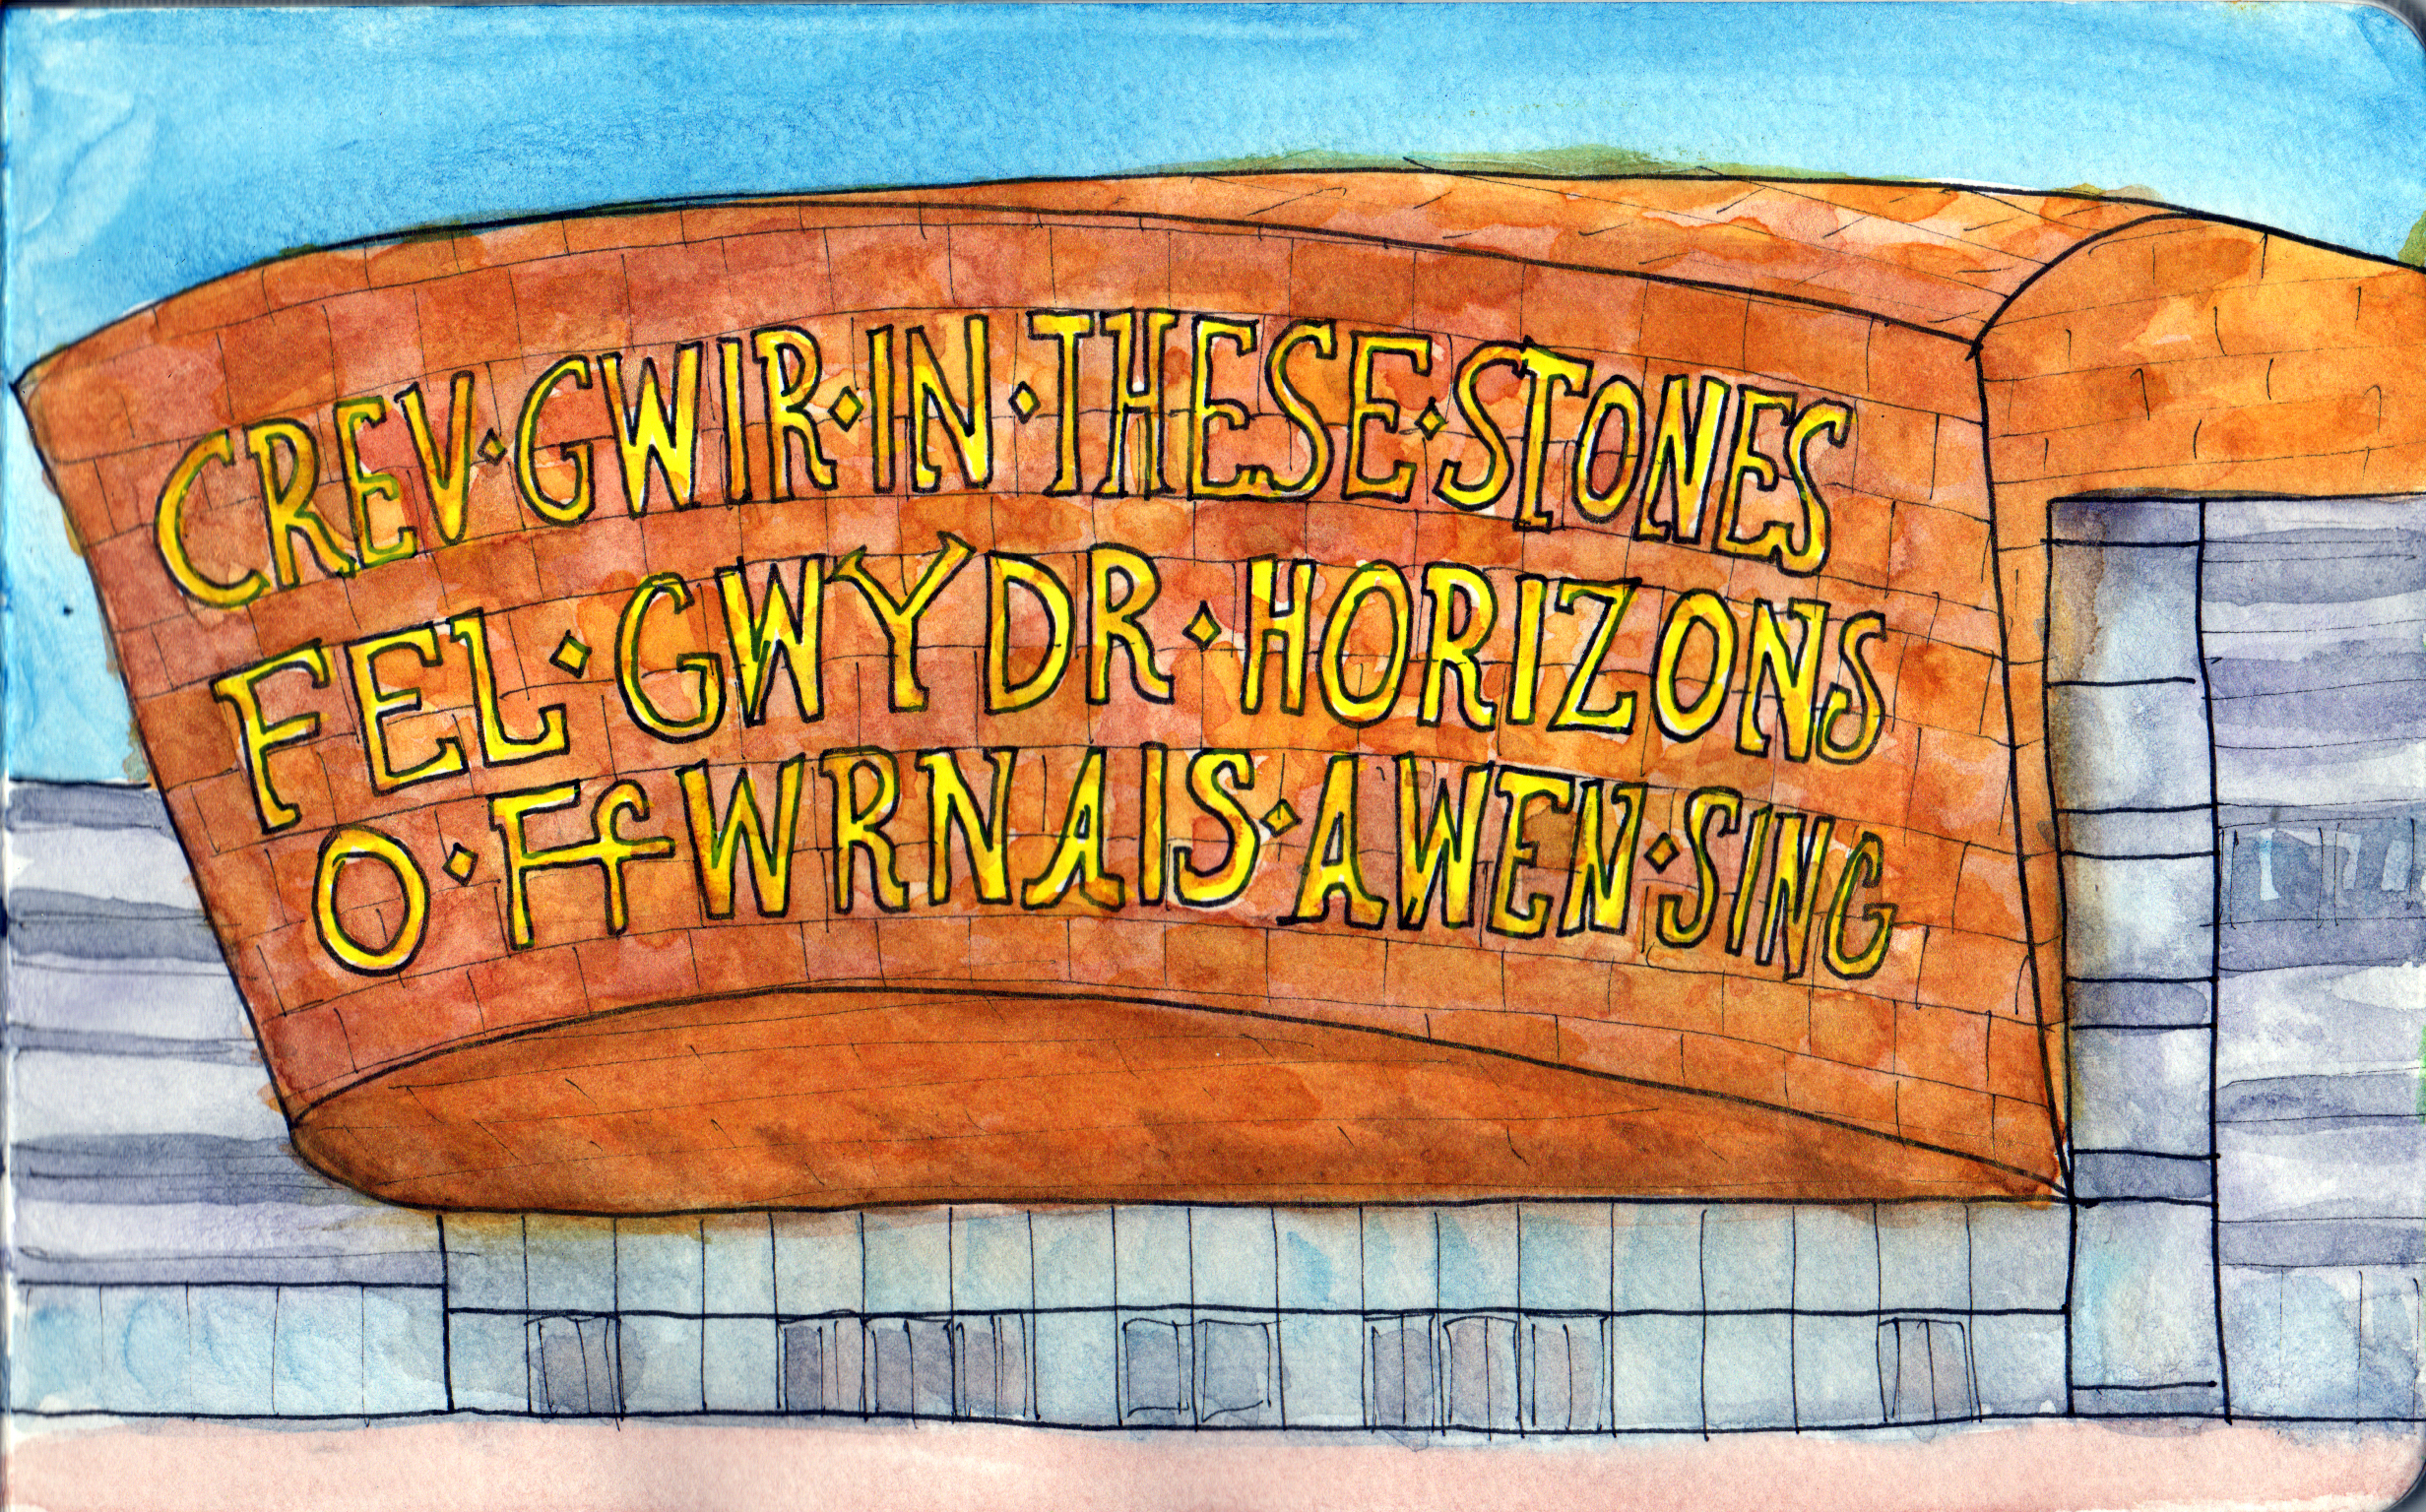 CREV·GWIR·IN·THESE·STONES
FEL·GWYDR·HORIZONS
O·FfWRNAIS·AWEN·SING